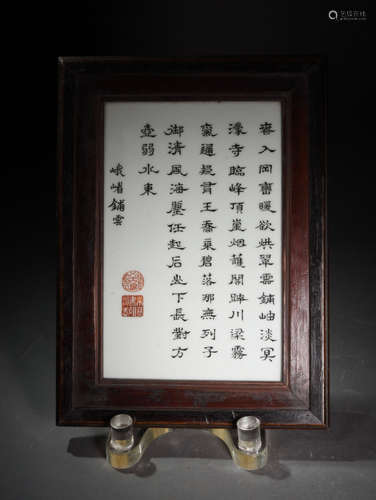 春入岡巒暖欲烘翠雲鋪岫淡冥
濛寺臨峰頂嵐烟護閣跨川梁霧
氣通疑貫王喬乘碧落那無列子
御清風海鰲任起石坐下長對方
壺弱水東
峨嵋鋪雲